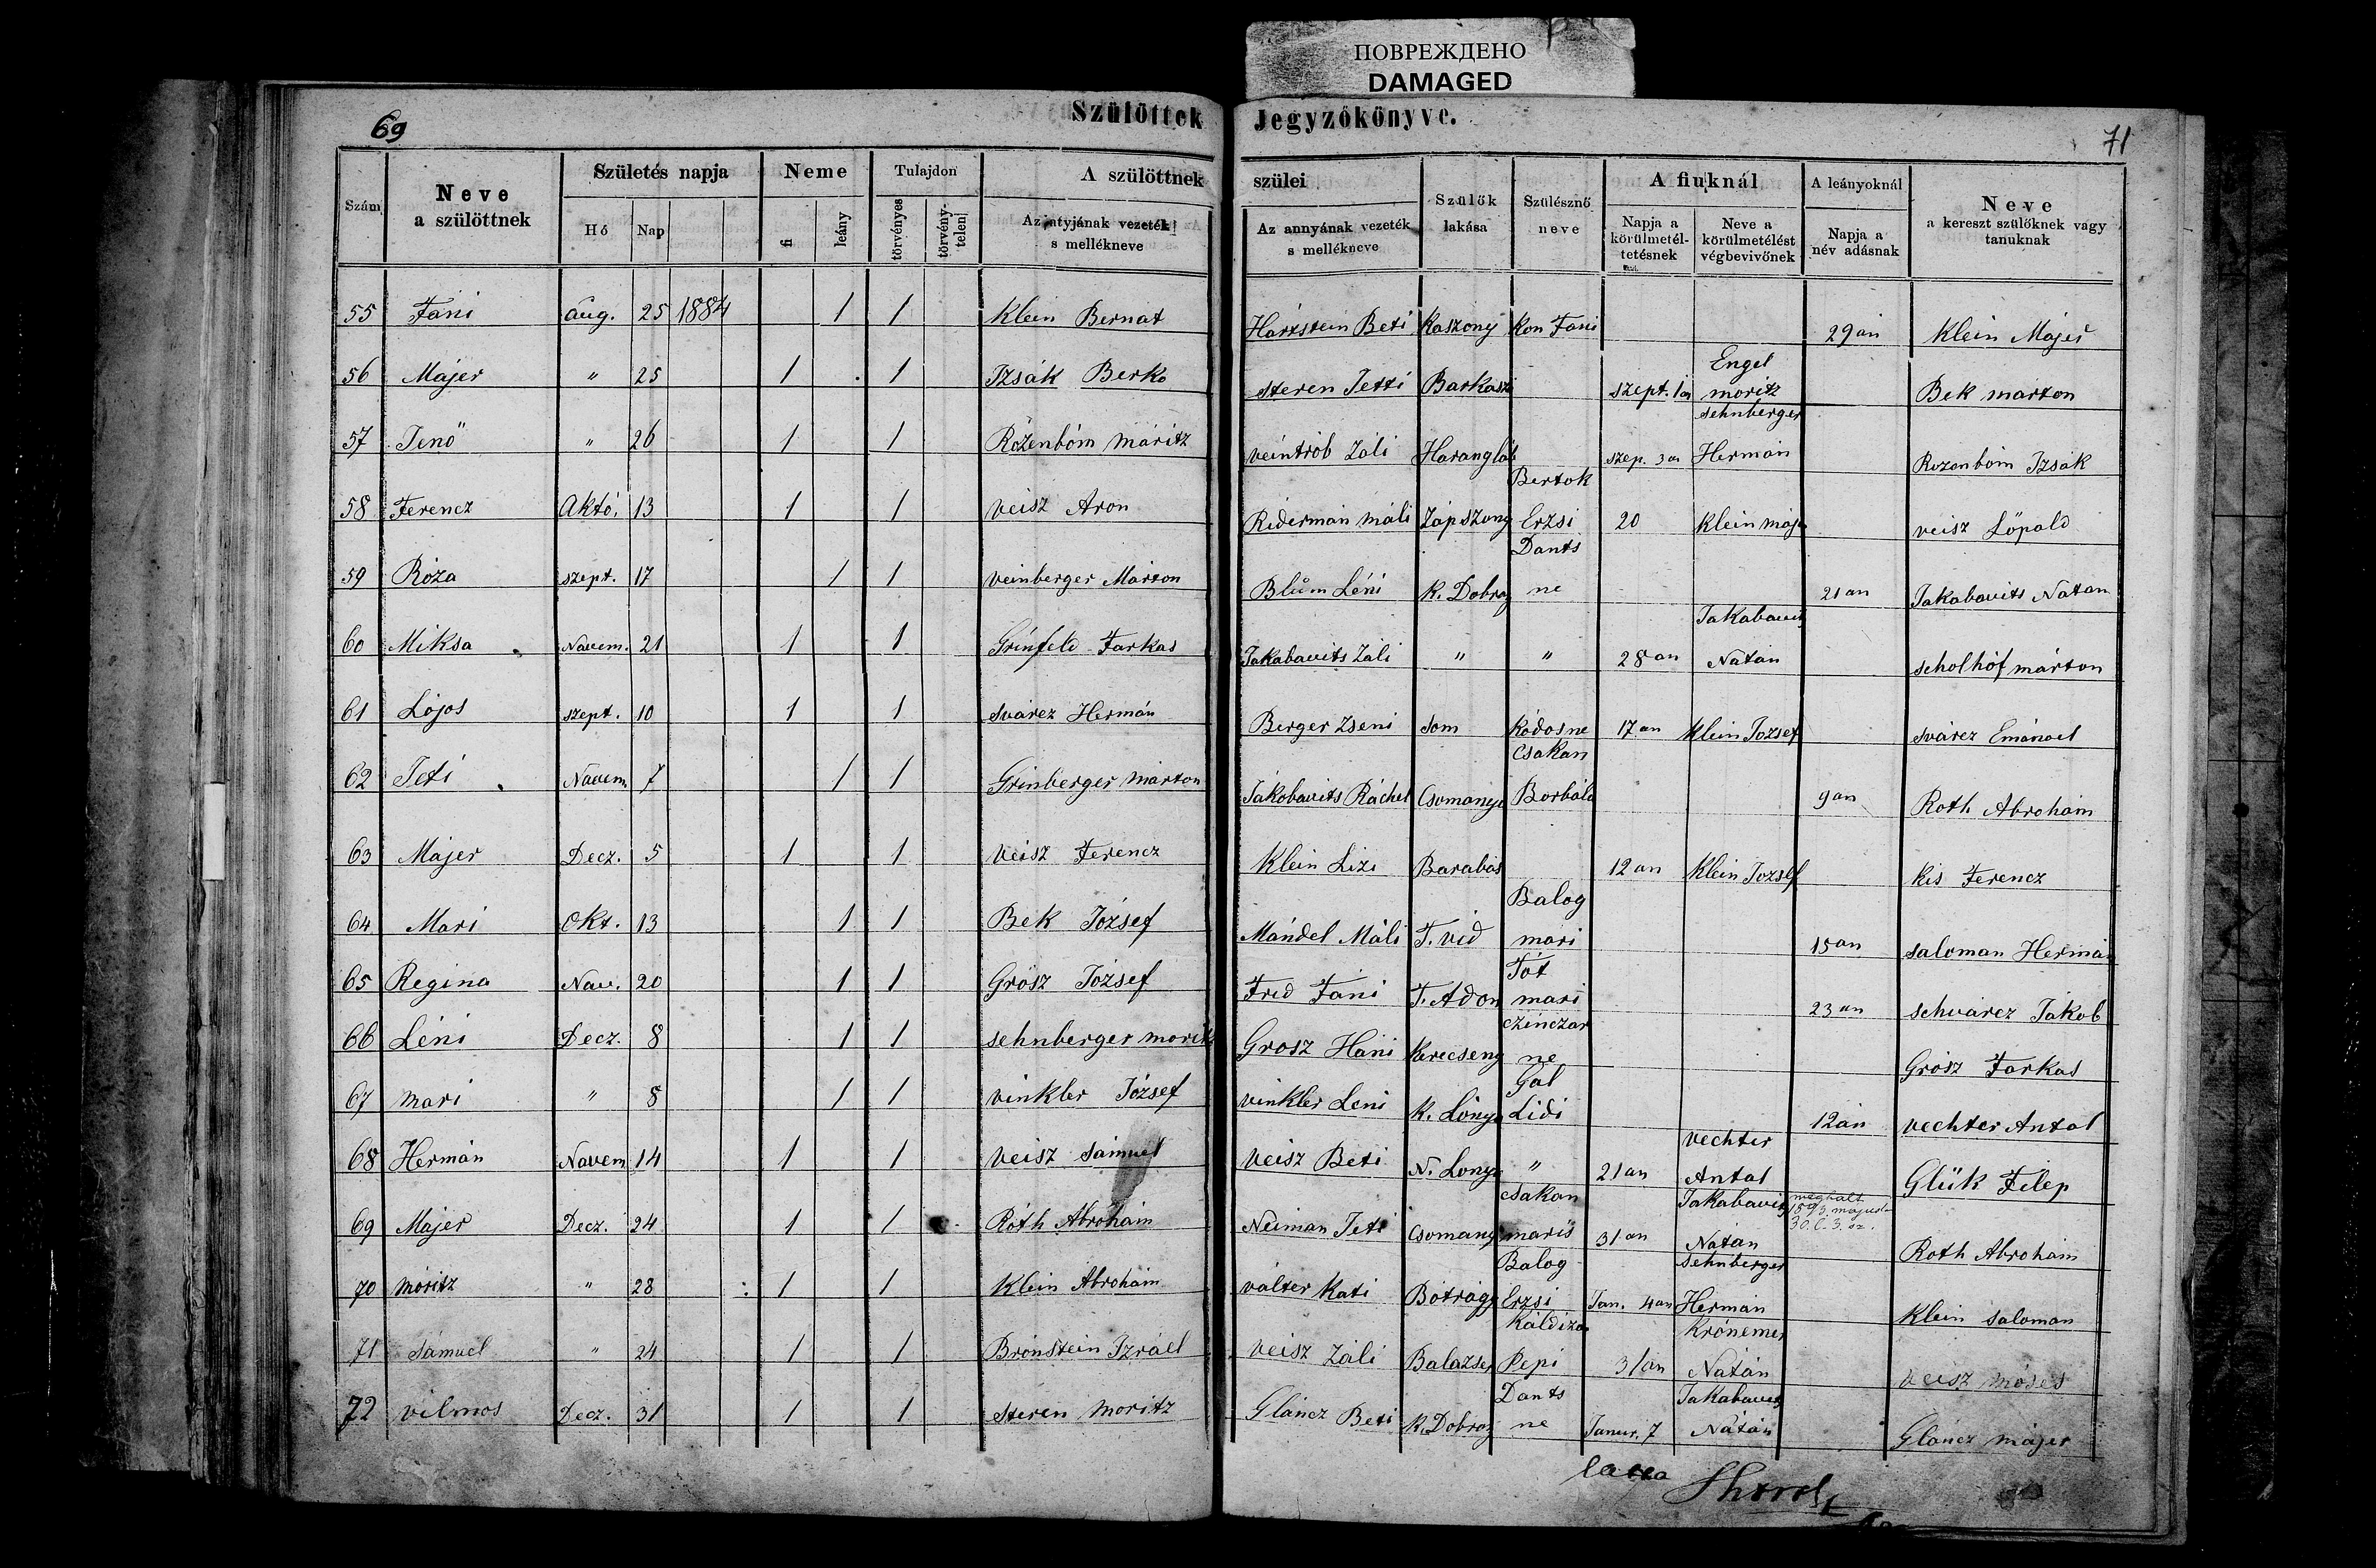 ПОВРЕЖДЕНО
DAMAGED
69
Szülöttek Jegyzőkönyve.
71
Szám
Neve a szülöttnek
Születés napja
Hó Nap
Neme
fi leány
Tulajdon
törvényes törvénytelen
A szülöttnek szülei
Az atyjának vezeték s mellékneve
Az annyának vezeték s mellékneve
Szülők lakása
Szülésznő neve
A fiuknál
Napja a körülmetéltetésnek
Neve a körülmetélést végbevivőnek
A leányoknál
Napja a név adásnak
Neve a kereszt szülőknek vagy tanuknak
55 Fáni aug. 25 1884 1 1 Klein Bernat Hartstein Beti Kaszony Kon Fani 29an Klein Májer
56 Májer " 25 1 1 Izsák Berko steren Jetti Barkaszo szept. 1an Engel moritz Bek marton
57 Jenö " 26 1 1 Rozenbóm máritz veintrób Záli Harangláb szep. 3an sehnberger Hermán Rozonbóm Izsák
58 Ferencz Aktó. 13 1 1 veisz Aron Riderman máli Zápszony Bertok Erzsi 20 Klein máje veisz Löpald
59 Róza szept. 17 1 1 veinberger Márton Blum Léni K. Dobrony Dants ne 21an Jakabavits Natan
60 Miksa Navem. 21 1 1 Grinfeld Farkas Jakabavits Záli " " 28an Jakabavits Natán scholhóf márton
61 Lajos szept. 10 1 1 svárcz Hermán Berger Zseni som Kódosne 17an Klein Jozsef svárcz Emánoel
62 Jeti Navem. 7 1 1 Grinberger márton Jákobavits Ráchel Csomanya Csakan Borbála 9an Roth Abrohám
63 Májer Decz. 5 1 1 veisz Ferencz Klein Lizi Barabás 12an Klein Jozsef Kis Ferencz
64 Mari Okt. 13 1 1 Bek József Mándel Máli T. vid Balog mari 15an saloman Hermán
65 Regina Nav. 20 1 1 Grósz József Frid Fáni T. Adon Tót mari 23an schvárcz Jákob
66 Léni Decz. 8 1 1 sehnberger moritz Grosz Háni Kerecseny czinczar ne Grósz Farkas
67 mari " 8 1 1 vinkler József vinkler Leni K. Lónya Gál Lidi 12án vechter Antal
68 Hermán Navem 14 1 1 veisz sámuel veisz Beti N. Lonya " 21an vechter Antal Glük Filep
69 Májer Decz. 24 1 1 Róth Abrohám Neiman Jeti Csomany csakan maris 31an Jakabavits Natán meghalt 1893. május 30. C. 3. sz. Roth Abrohám
70 móritz " 28 1 1 Klein Abrohám válter Kati Bótrágy Balog Erzsi Jan. 4an sehnberger Hermán Klein saloman
71 sámuel " 24 1 1 Brónstein Izráel veisz Záli Balazser Káldiza Pepi 31an Krónemer Natán veisz móses
72 vilmos Decz. 31 1 1 steren moritz Gláncz Beti K. Dobrony Dants ne Janur. 7 Jakabavits Nátán Gláncz májer